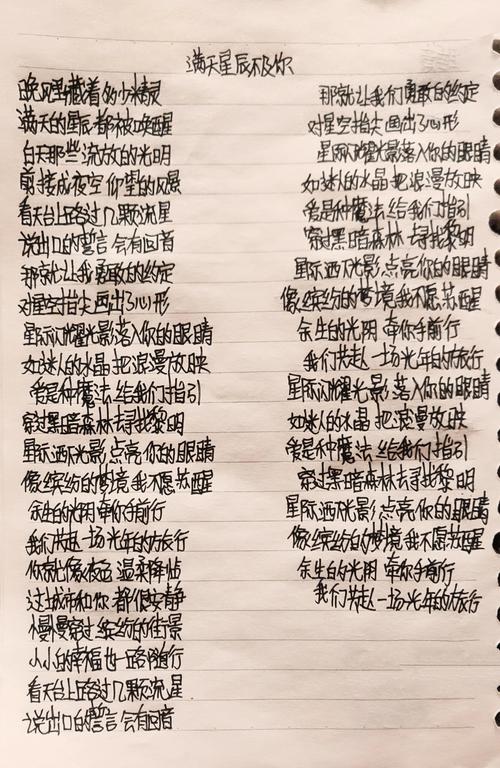 满天星辰不及你
晚风里藏着的小精灵
满天的星辰都被唤醒
白天那些流放的光明
剪接成夜空仰望的风景
看天台上路过几颗流星
说出口的誓言会有回音
那就让我勇敢的约定
对星空指尖画出了心形
星际闪耀光影落入你的眼睛
如迷人的水晶把浪漫放映
爱是种魔法给我们指引
穿过黑暗森林去寻找黎明
星际洒下光影点亮你的眼睛
像缤纷的梦境我不愿苏醒
余生的光阴牵你手前行
我们共赴一场光年的旅行
你就像夜色温柔降临
这城市和你都很安静
慢慢穿过缤纷的街景
小小的幸福也一路随行
看天台上路过几颗流星
说出口的誓言会有回音
那就让我们勇敢的约定
对星空指尖画出了心形
星际闪耀光影落入你的眼睛
如迷人的水晶把浪漫放映
爱是种魔法给我们指引
穿过黑暗森林去寻找黎明
星际洒下光影点亮你的眼睛
像缤纷的梦境我不愿苏醒
余生的光阴牵你手前行
我们共赴一场光年的旅行
星际闪耀光影落入你的眼睛
如迷人的水晶把浪漫放映
爱是种魔法给我们指引
穿过黑暗森林去寻找黎明
星际洒下光影点亮你的眼睛
像缤纷的梦境我不愿苏醒
余生的光阴牵你手前行
我们共赴一场光年的旅行